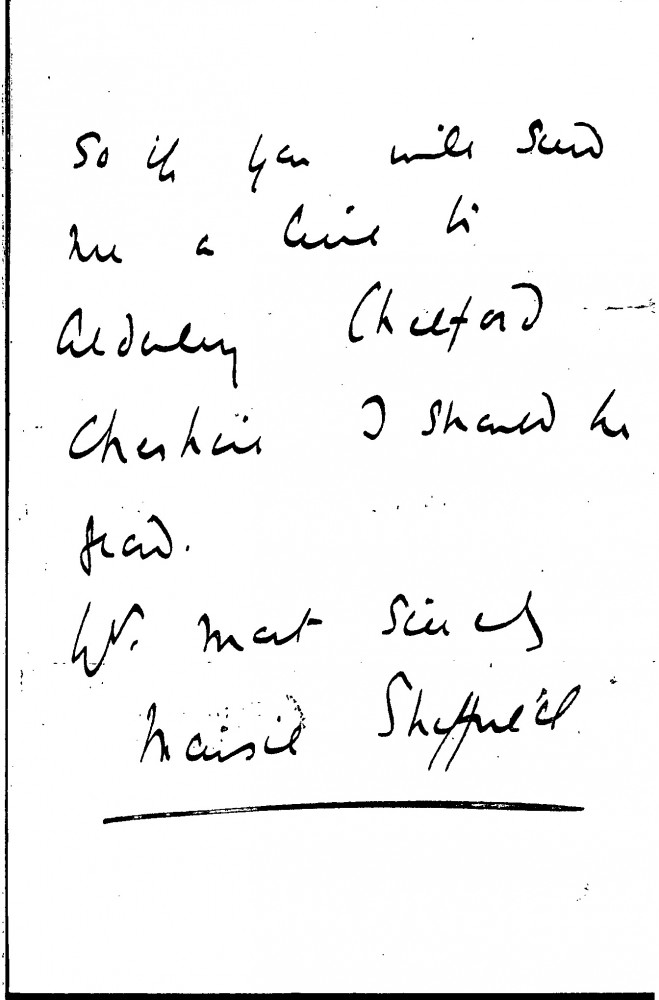 So if you will send
me a line to
Alderley Chelford
Cheshire I should be
glad.
Yr. most sincely
Maisie Sheffield